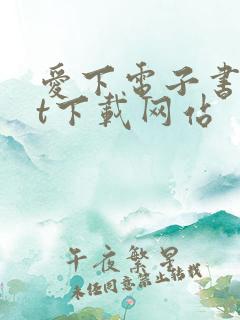 爱下电子书
t下载网站
午夜繁星
未经同意禁止转载